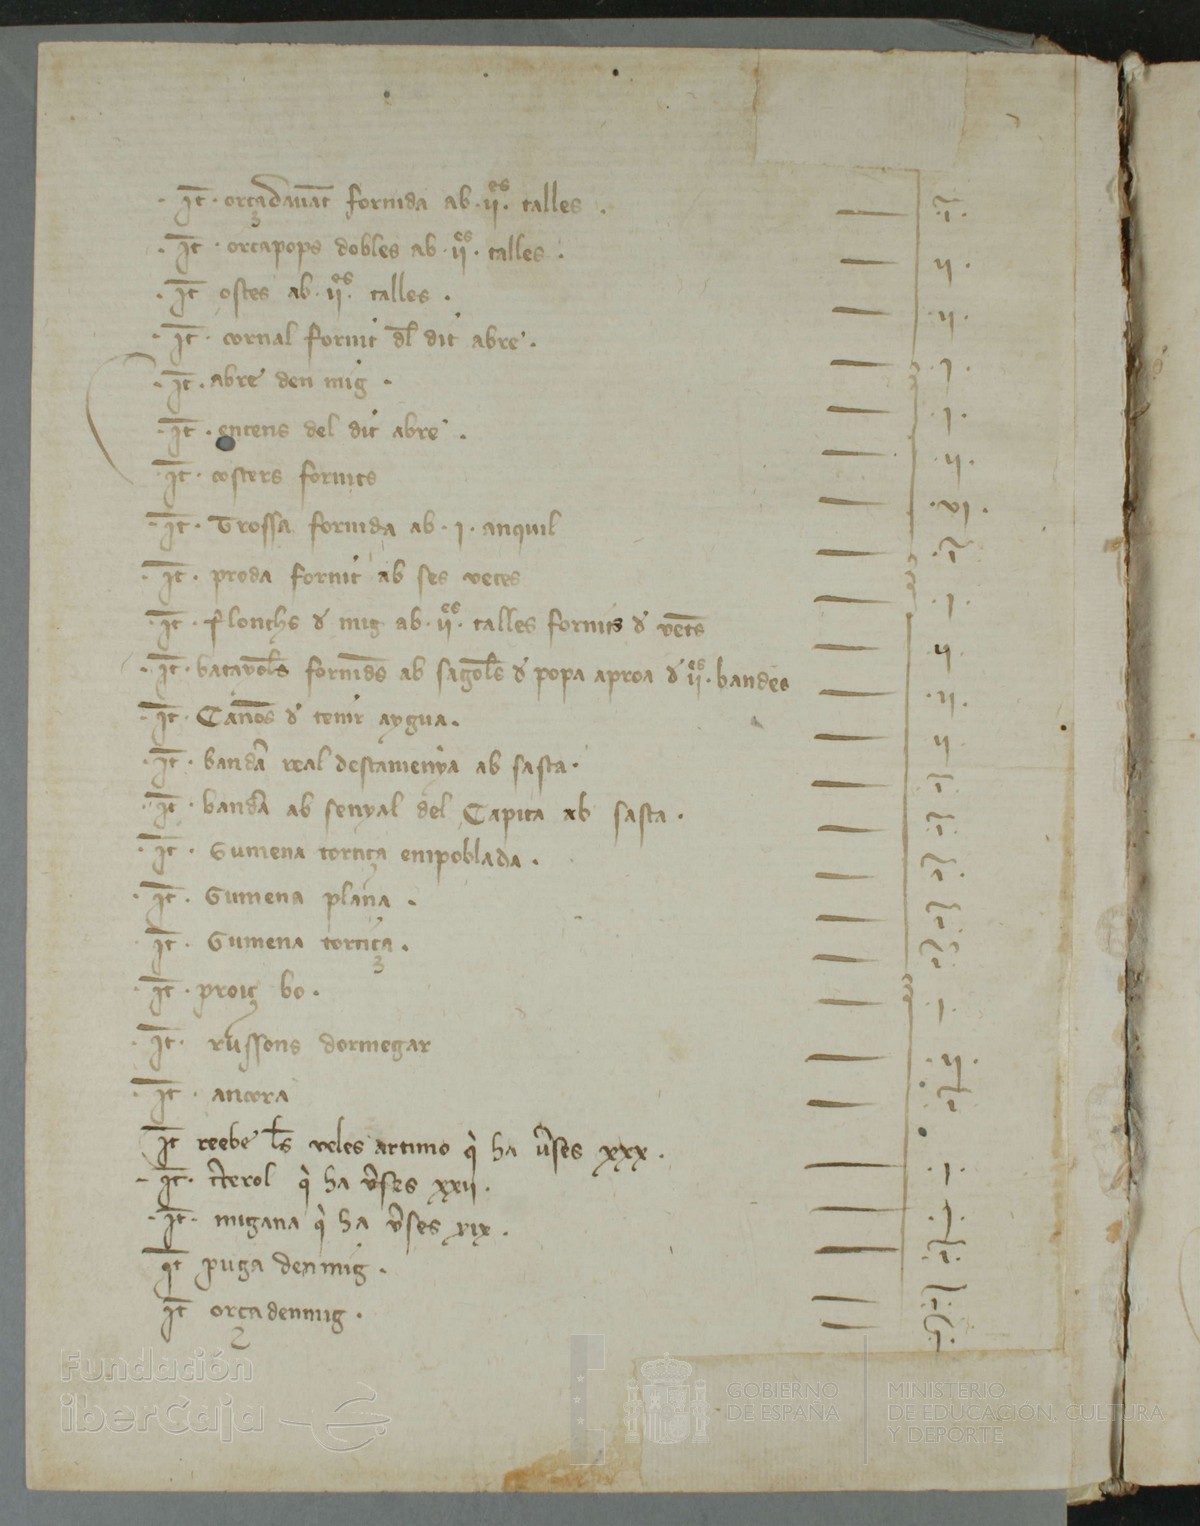 · It̄ · orçadauāt fornida ab · ii^es · talles · — · j̃ ·
· It̄ · orcapops dobles ab · ii^es · talles · — ii ·
· It̄ ostes ab · ii^es · talles · — · ii ·
· It̄ · cornal fornit dl̄ dit abre · — · i ·
· It̄ · abre den mig · — · i ·
· It̄ · entens del dit abre · — · ii ·
· It̄ · costers fornits — · vi ·
· It̄ · Trossa fornida ab · i · anquil — · j̃ ·
· It̄ · proda fornit ab ses vetes — · i ·
· It̄ · flonchs d' mig ab · ii^es · talles fornits d' vet̄s — ii ·
· It̄ · batavol̄s fornid̄s ab sagol̄s d' popa aproa d' ii^es · bandes — · ii ·
· It̄ · Canōs d' tenir aygua · — ii ·
· It̄ · band̃a real destamenya ab sasta · — j̃ ·
· It̄ · band̃a ab senyal del Capita ab sasta · — j̃ ·
· It̄ · Gumena tortiça enpoblada · — j̃ ·
· It̄ · Gumena plana · — j̃ ·
· It̄ · Gumena tortiça · — j̃ ·
· It̄ · proiç bo · — · i ·
· It̄ · russons dormegar — · ii ·
· It̄ · ancora — j̃ ·
It̄ reebe l̄s veles artimo q̀ ha ṽses xxx · — · i ·
· It̄ · t̃cerol q̀ ha ṽses xxii · — · j ·
· It̄ · migana q̀ ha ṽses xix · — · j̃ ·
It̄ puga denmig · — j̃ ·
It̄ orça denmig · — j̃ ·
Fundación
iberCaja
GOBIERNO
DE ESPAÑA
MINISTERIO
DE EDUCACIÓN, CULTURA
Y DEPORTE